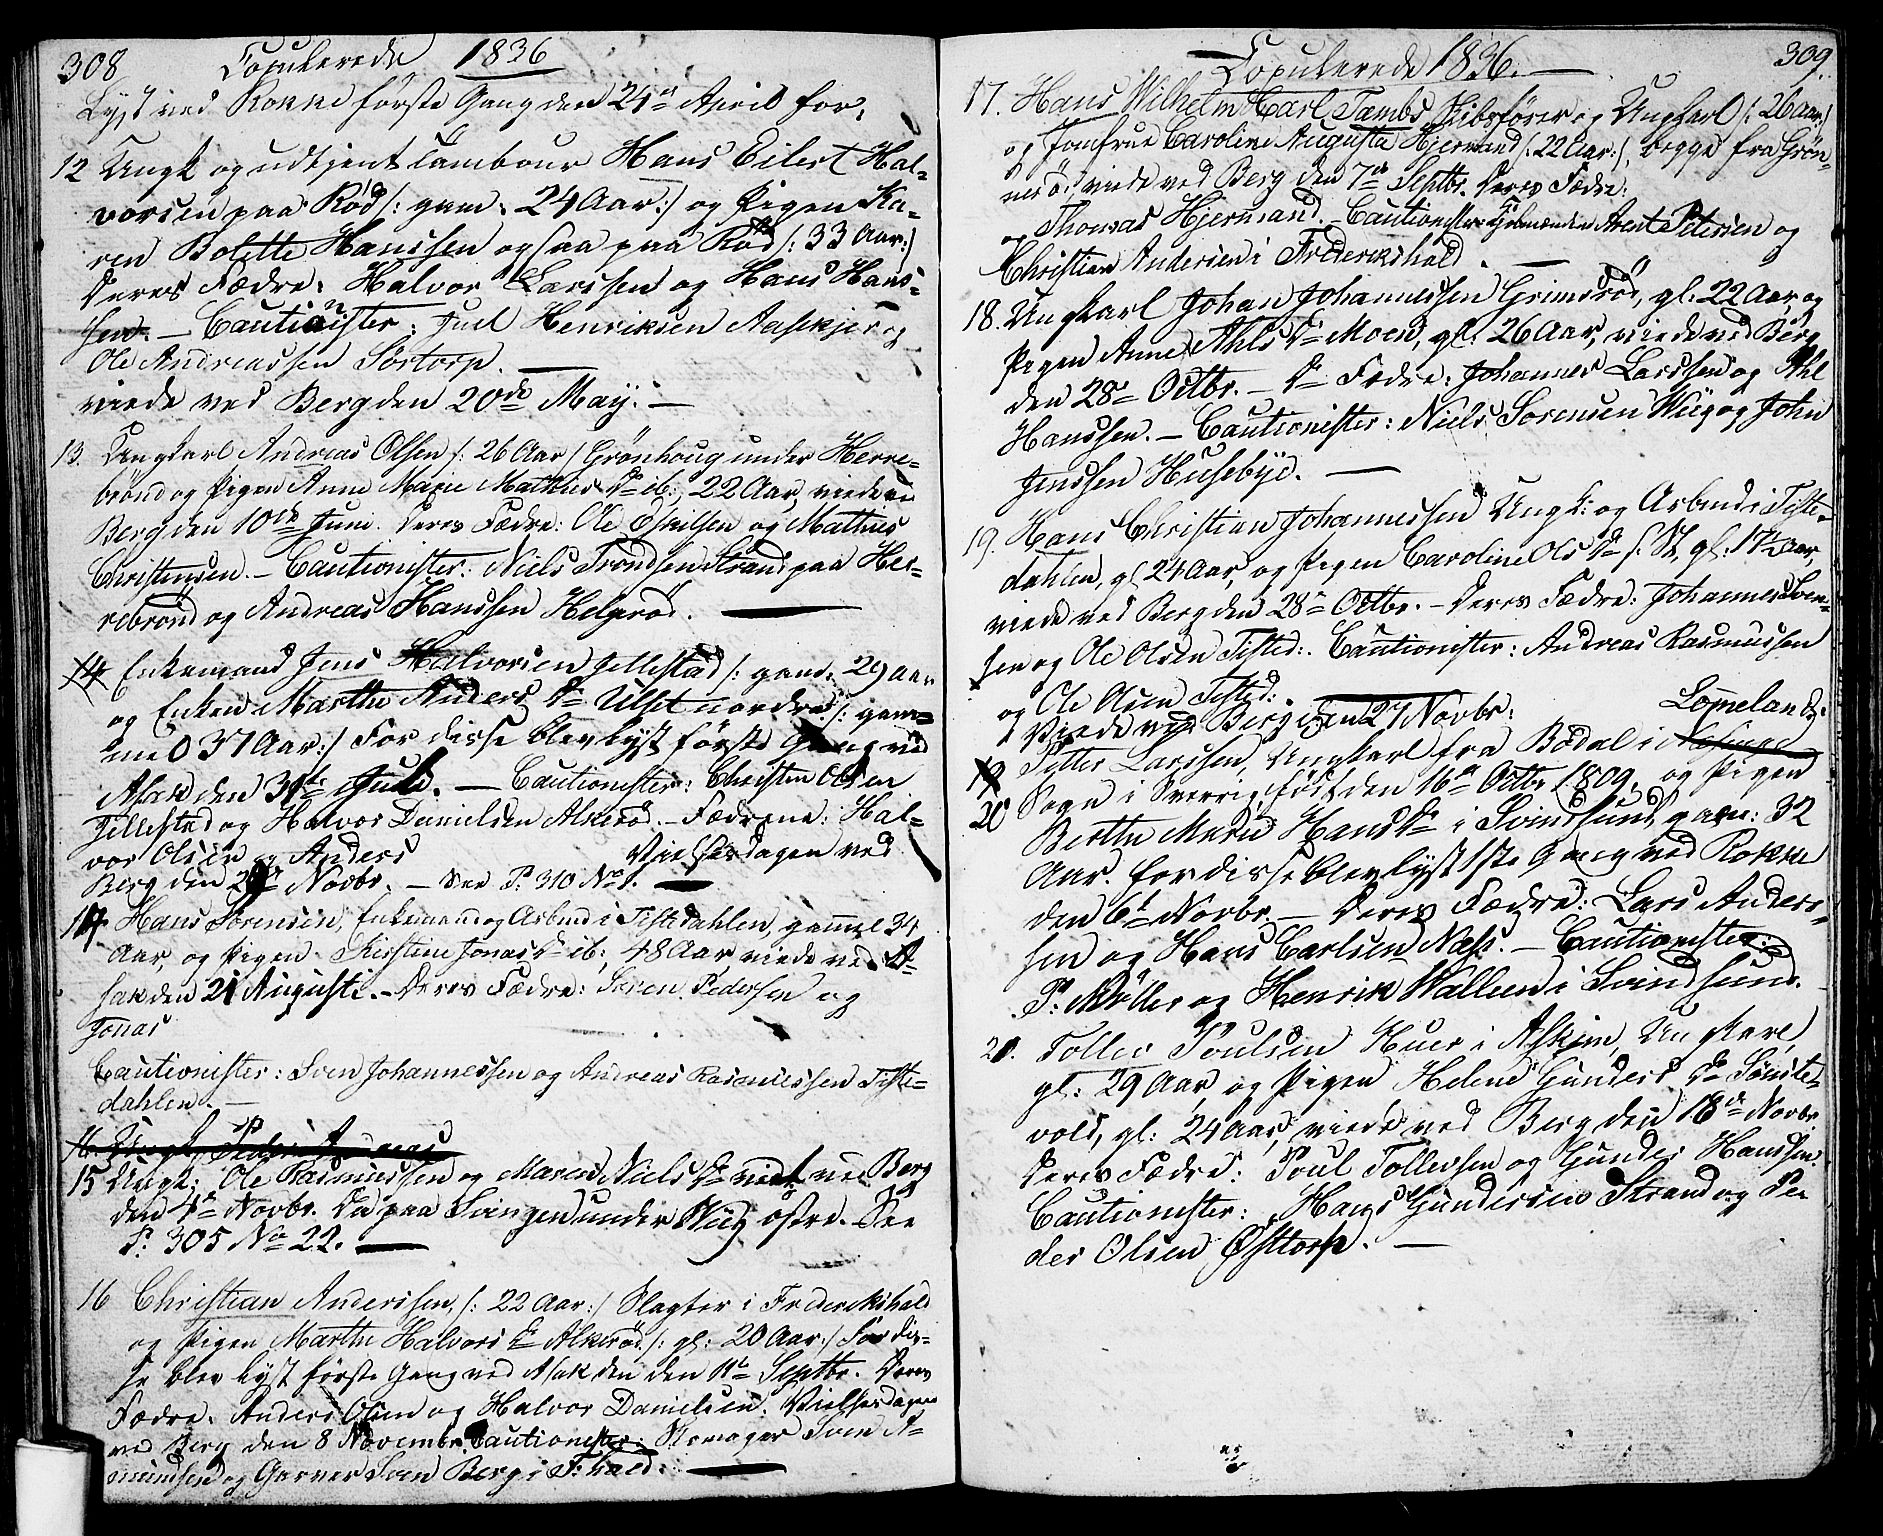 308 Copulerede 1836
Lyst ved Rokke første Gang den 21de April for,
12 Ungk og udtjent Tambour Hans Eilert Hal-
vorsen paa Rød /: gam. 24 Aar :/ og Pigen Ka-
ren Bolette Hanssen ogsaa paa Rød /: 33 Aar :/
Deres Fædre: Halvor Larssen og Hans Hans-
sen. — Cautionister: Juel Henriksen Aaskjer og
Ole Andreassen Sørtorp. —
viede ved Berg den 20de May. —
13. Ungkarl Andreas Olsen /: 26 Aar / Grønhoug under Herre-
brønd og Pigen Anne Marie Mathias Dr ib:, 22 Aar, viede ved
Berg den 10de Juni. Deres Fædre: Ole Eskilsen og Mathias
Christensen. — Cautionister: Niels Trondsen Strand paa Her-
rebrønd og Andreas Hanssen Helgerød. —
14 Enkemand Jens Halvorsen Jellestad /: gam: 29 Aar
og Enken Marthe Anders Dr Ulset nordre /: gam-
mel 37 Aar :/ For disse blev lyst første Gang ved
Asak den 31te Juli. — Cautionister: Christen Olsen
Jellestad og Halvor Danielsen Alkerød. — Fædrene: Hal-
vor Olsen og Anders Vielsesdagen ved
Berg den Novbr. — See P. 310 No 1. —
14 Hans Sørensen, Enkemand og Arbmd i Tistedahlen, gammel 34
Aar, og Pigen Kirstine Jonas Dr ib:, 48 Aar viede ved A-
sak den 21 Augusti. — Deres Fædre: Søren Pedersen og
Jonas
Cautionister: Sven Johannessen og Andreas Rasmussen Tiste-
dahlen. —
15 Ungk: Ole Rasmussen og Maren Niels Dr viet ved Berg
den 4de Novbr. Da paa Svingen under Wiig østre. See
P: 305 No 22. —
16 Christian Anderssen, /: 22 Aar :/ Slagter i Frederikshald
og Pigen Marthe Halvors Dr Alkerød /: gl: 20 Aar :/ For dis-
se blev lyst første Gang ved Asak den den 11te Septbr. Deres
Fædre: Anders Olsen og Halvor Danielsen. Vielsesdagen
ved Berg den 8 November. Cautionister: Skomager Sven A-
mundsen og Garver Sven Berg i F:hald. —
Copulerede 1836. — 309.
17. Hans Wilhelm Carl Tambs Skibsfører og Ungkarl /: 26 Aar :/
og Jomfrue Caroline Augusta Hjermand /: 22 Aar :/, begge fra Grøn-
nesø, viede ved Berg den 7de Septbr. Deres Fædre:
og Thomas Hjermand. — Cautionister Arent Petersen og
Christian Andersen i Frederikshald. —
18. Ungkarl Johan Johannessen Grimsrød, gl: 22 Aar og
Pigen Anne Ahls Dr Moen, gl: 26 Aar, viede ved Berg
den 28de Octbr. — Dr Fædre: Johannes Larssen og Ahl
Hanssen. — Cautionister: Niels Sørensen Wiig og John
Jenssen Husebye. —
19. Hans Christian Johannessen Ungk: og Arbmd i Tiste-
dahlen, gl 24 Aar, og Pigen Caroline Ols Dr /: St, gl: 17½ Aar,
viede ved Berg den 28de Octbr. — Deres Fædre: Johannes Sven-
sen og Ole Olsen Tisted:. Cautionister: Andreas Rasmussen
og Ole Olsen Tisted:.
Viede ved Berg den 27 Novbr: Lommelands
19 Petter Larssen, Ungkarl fra Bødal i
20 Sogn i Sverrig født den 16de Octbr 1809, og Pigen
Berthe Marie Hans Dr i Svindsund, gam: 32
Aar. for disse blev lyst 1ste Gang ved Rokke
den 6te Novbr. — Deres Fædre: Lars Anders-
sen og Hans Carlsen Næss. — Cautionister:
P: Møller og Henrik Walleen i Svindsund.
21. Tollev Poulsen Huer i Askim, Ungkarl,
gl: 29 Aar, og Pigen Helene Gunders Dr Sønste-
vold, gl: 24 Aar, viede ved Berg den 18de Novbr
Deres Fædre: Poul Tollevsen og Gunder Hanssen.
Cautionister: Hans Gundersen Strand og Pe-
der Olsen Østtorp. —